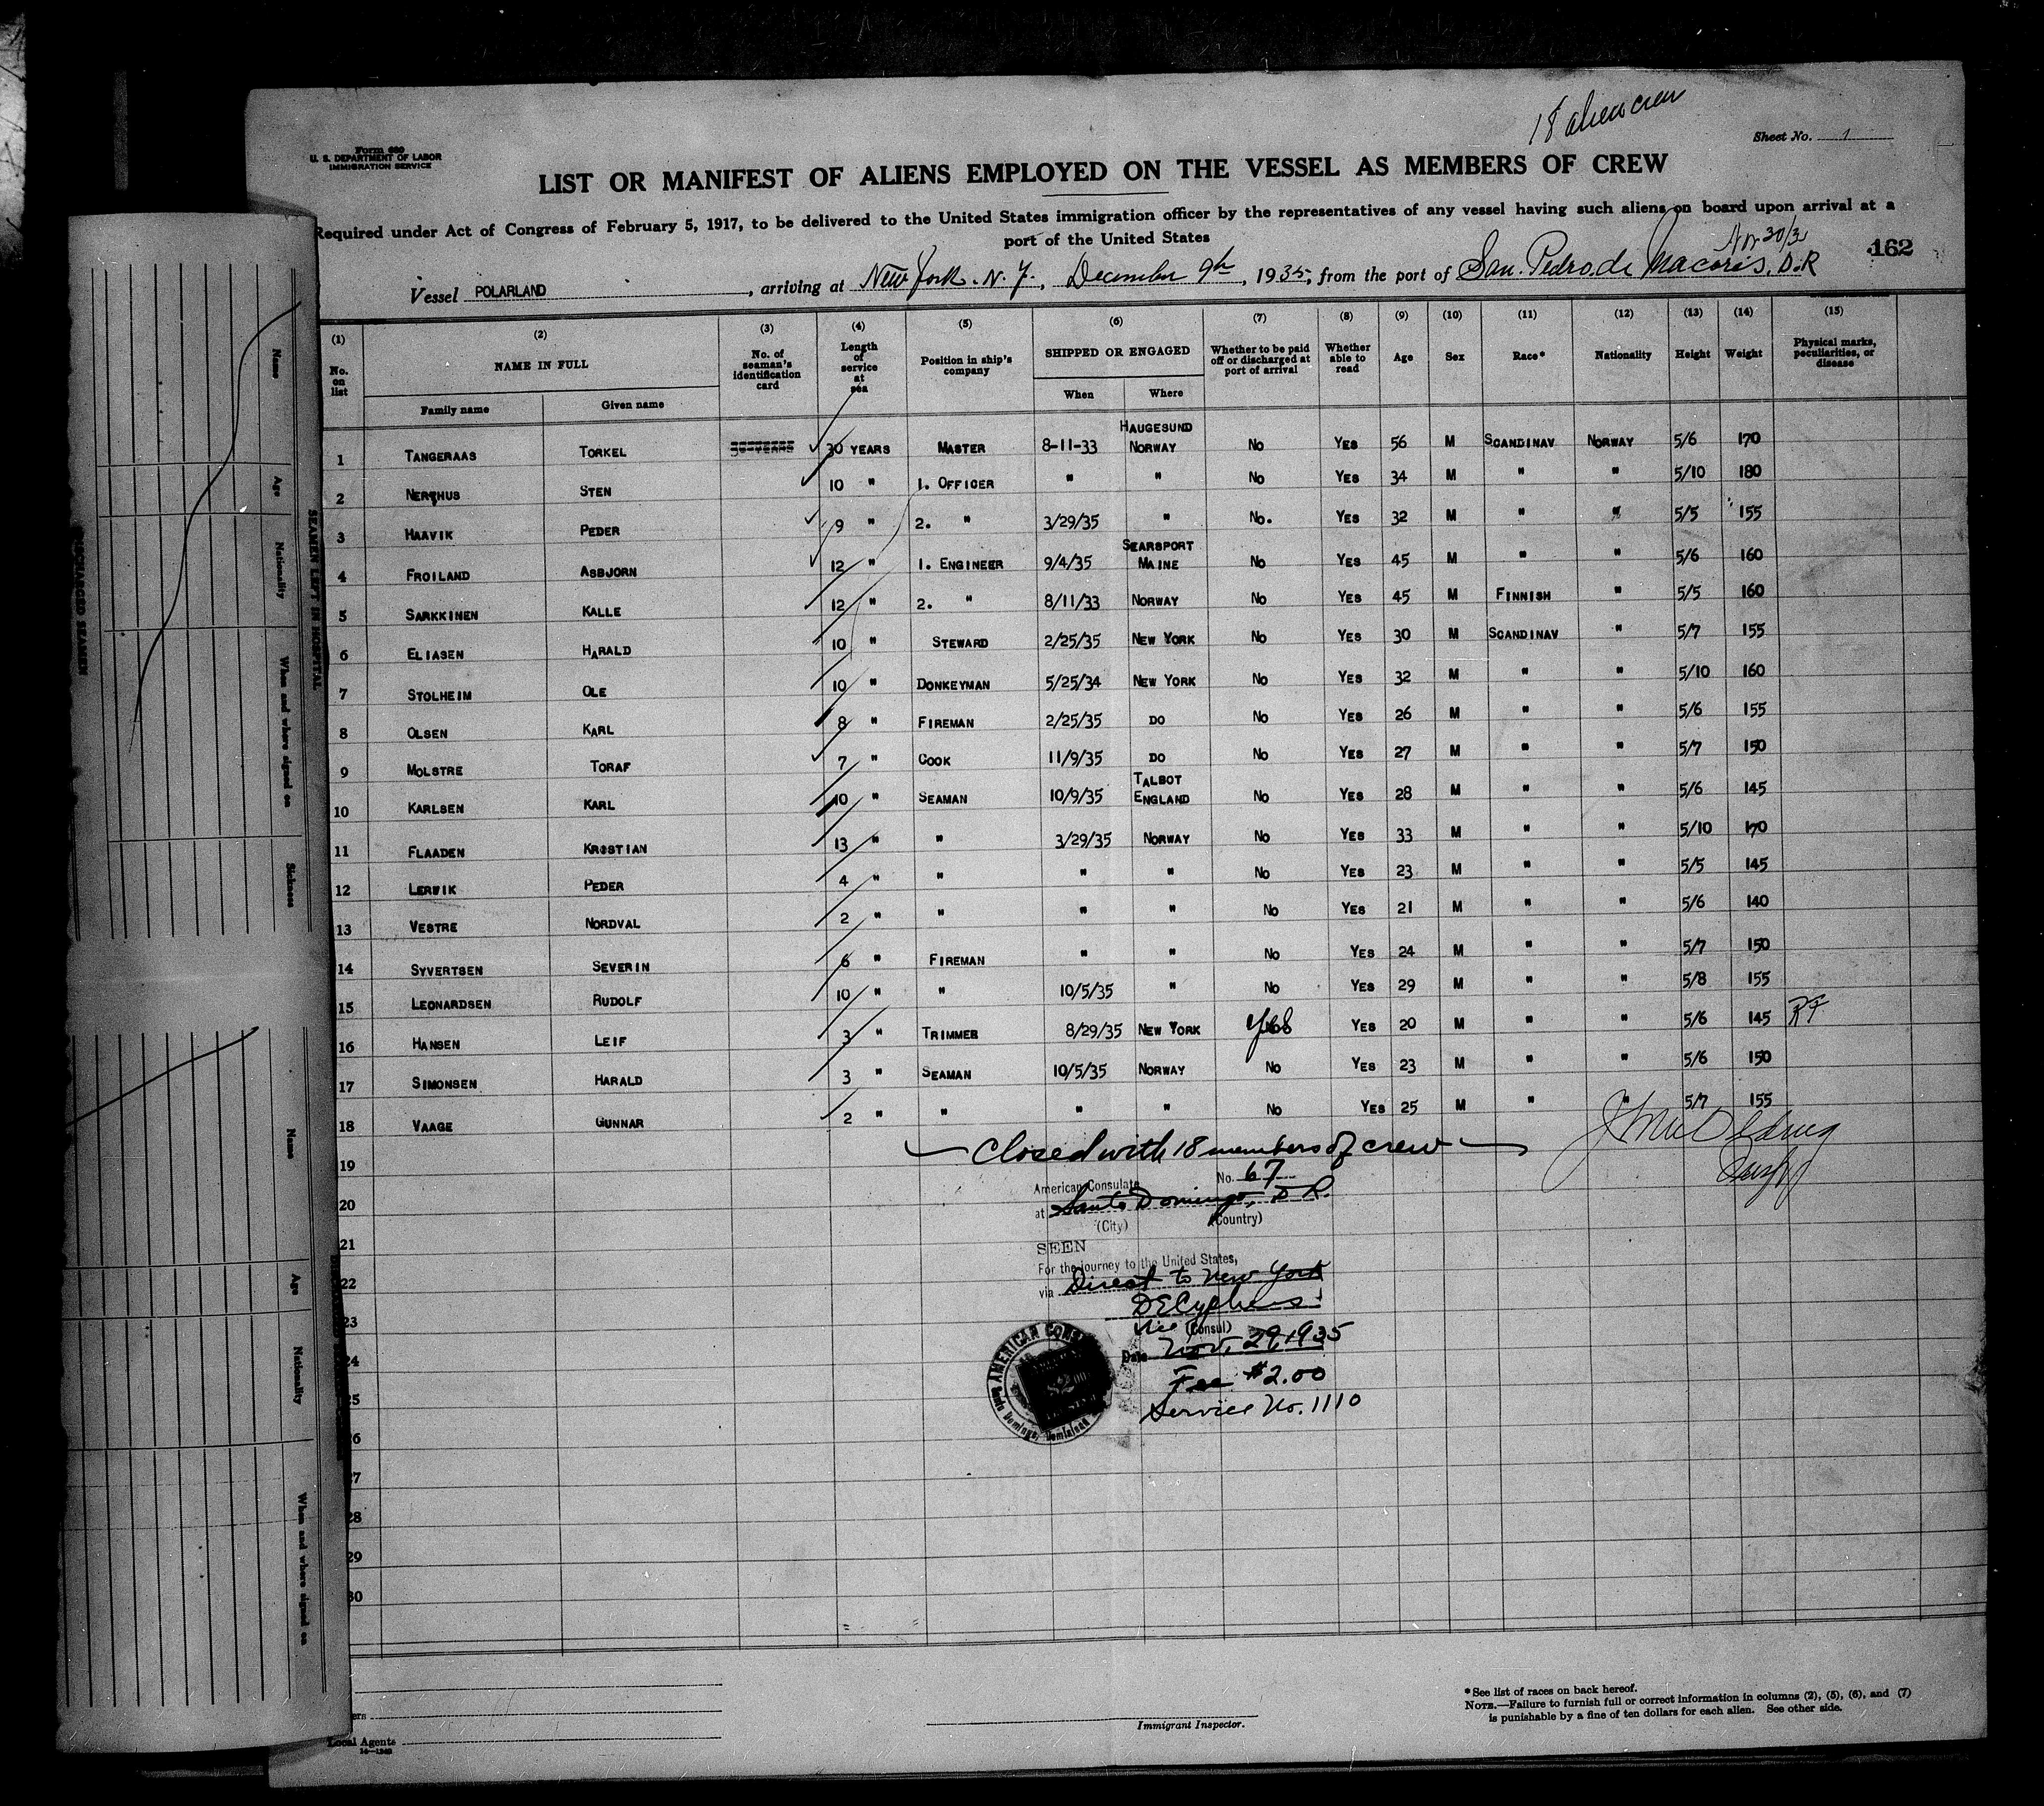 18 alien crew
Form 680
U. S. DEPARTMENT OF LABOR
IMMIGRATION SERVICE
Sheet No. 1
LIST OR MANIFEST OF ALIENS EMPLOYED ON THE VESSEL AS MEMBERS OF CREW
Required under Act of Congress of February 5, 1917, to be delivered to the United States immigration officer by the representatives of any vessel having such aliens on board upon arrival at a
port of the United States
162
Vessel POLARLAND, arriving at New York. N. Y., December 9th, 1935, from the port of San. Pedro. de Macoris, D.R
(1) (2) (3) (4) (5) (6) (7) (8) (9) (10) (11) (12) (13) (14) (15)
No. on list NAME IN FULL No. of seaman's identification card Length of service at sea Position in ship's company SHIPPED OR ENGAGED Whether to be paid off or discharged at port of arrival Whether able to read Age Sex Race* Nationality Height Weight Physical marks, peculiarities, or disease
Family name Given name When Where
1 TANGERAAS TORKEL 30 YEARS MASTER 8-11-33 HAUGESUND NORWAY No YES 56 M SCANDINAV NORWAY 5/6 170
2 NERTHUS STEN 10 " 1. OFFICER " " No YES 34 M " " 5/10 180
3 HAAVIK PEDER 9 " 2. " 3/29/35 " No. YES 32 M " " 5/5 155
4 FROILAND ASBJORN 12 " 1. ENGINEER 9/4/35 SEARSPORT MAINE No YES 45 M " " 5/6 160
5 SARKKINEN KALLE 12 " 2. " 8/11/33 NORWAY No YES 45 M FINNISH " 5/5 160
6 ELIASEN HARALD 10 " STEWARD 2/25/35 NEW YORK No YES 30 M SCANDINAV " 5/7 155
7 STOLHEIM OLE 10 " DONKEYMAN 5/25/34 NEW YORK No YES 32 M " " 5/10 160
8 OLSEN KARL 8 " FIREMAN 2/25/35 DO No YES 26 M " " 5/6 155
9 MOLSTRE TORAF 7 " COOK 11/9/35 DO No YES 27 M " " 5/7 150
10 KARLSEN KARL 10 " SEAMAN 10/9/35 TALBOT ENGLAND No YES 28 M " " 5/6 145
11 FLAADEN KRISTIAN 13 " " 3/29/35 NORWAY No YES 33 M " " 5/10 170
12 LERVIK PEDER 4 " " " " No YES 23 M " " 5/5 145
13 VESTRE NORDVAL 2 " " " " No YES 21 M " " 5/6 140
14 SYVERTSEN SEVERIN 6 " FIREMAN " " No YES 24 M " " 5/7 150
15 LEONARDSEN RUDOLF 10 " " 10/5/35 " No YES 29 M " " 5/8 155
16 HANSEN LEIF 3 " TRIMMER 8/29/35 NEW YORK Yes YES 20 M " " 5/6 145 RF
17 SIMONSEN HARALD 3 " SEAMAN 10/5/35 NORWAY No YES 23 M " " 5/6 150
18 VAAGE GUNNAR 2 " " " " No YES 25 M " " 5/7 155
19 Closed with 18 members of crew
American Consulate No. 67
20 at Santo Domingo, D. R.
(City) (Country)
21 SEEN
For the journey to the United States,
22 via Direct to New York
23 Vice (Consul)
24 Date Nov. 29, 1935
Fee $2.00
25 Service No. 1110
AMERICAN CONSULATE
Santo Domingo, Dominican
$2.00
26
27
28
29
30
Local Agents
Immigrant Inspector.
*See list of races on back hereof.
NOTE.—Failure to furnish full or correct information in columns (2), (5), (6), and (7)
is punishable by a fine of ten dollars for each alien. See other side.
SEAMEN LEFT IN HOSPITAL
DISCHARGED SEAMEN
Name
Age
Nationality
When and where signed on
Sickness
Name
Age
Nationality
When and where signed on